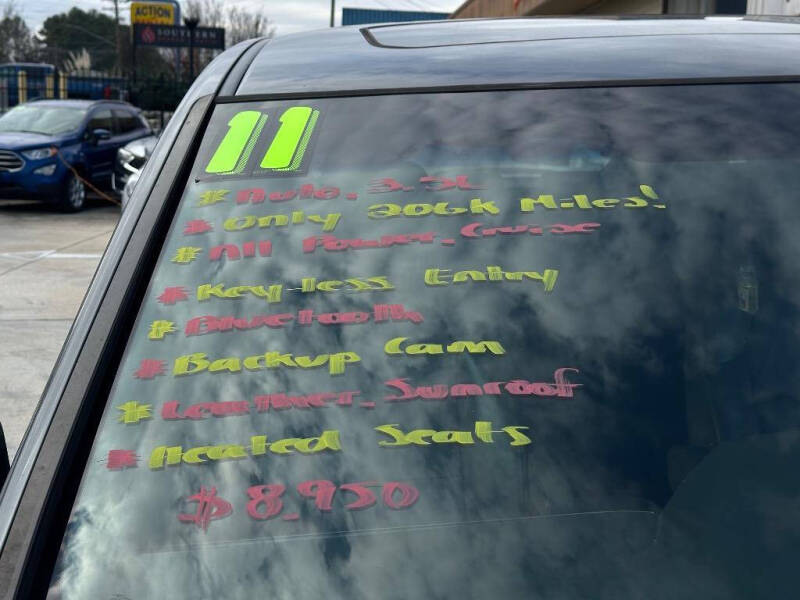 ACTION
SOUTHERN
11
* Auto, 3.5L
* Only 206K Miles!
* All Power, Cruise
* Key-less Entry
* Bluetooth
* Backup Cam
* Leather, Sunroof
* Heated Seats
$8,950